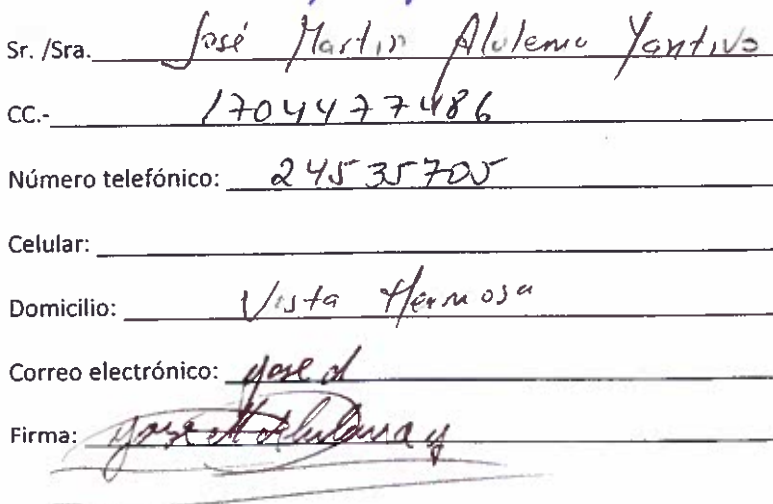 Sr. /Sra. José Martin Alulema Yantivo
CC.- 1704477486
Número telefónico: 24535705
Celular:
Domicilio: Vista Hermosa
Correo electrónico: jose
Firma: Jose M Alulema y